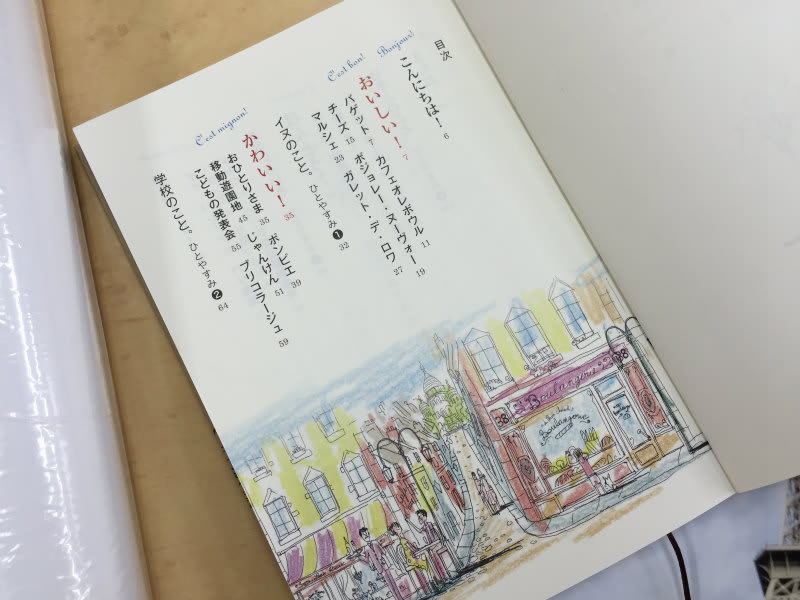 目次
Bonjour!
こんにちは！ 6
C'est bon!
おいしい！ 7
バゲット 7
カフェオレボウル 11
チーズ 15
ボジョレー・ヌーヴォー 19
マルシェ 23
ガレット・デ・ロワ 27
イヌのこと。 ひとやすみ❶ 32
C'est mignon!
かわいい！ 35
おひとりさま 35
ポンピエ 39
移動遊園地 45
じゃんけん 51
こどもの発表会 55
ブリコラージュ 59
学校のこと。 ひとやすみ❷ 64
Boulangerie
38
38
Boulangerie